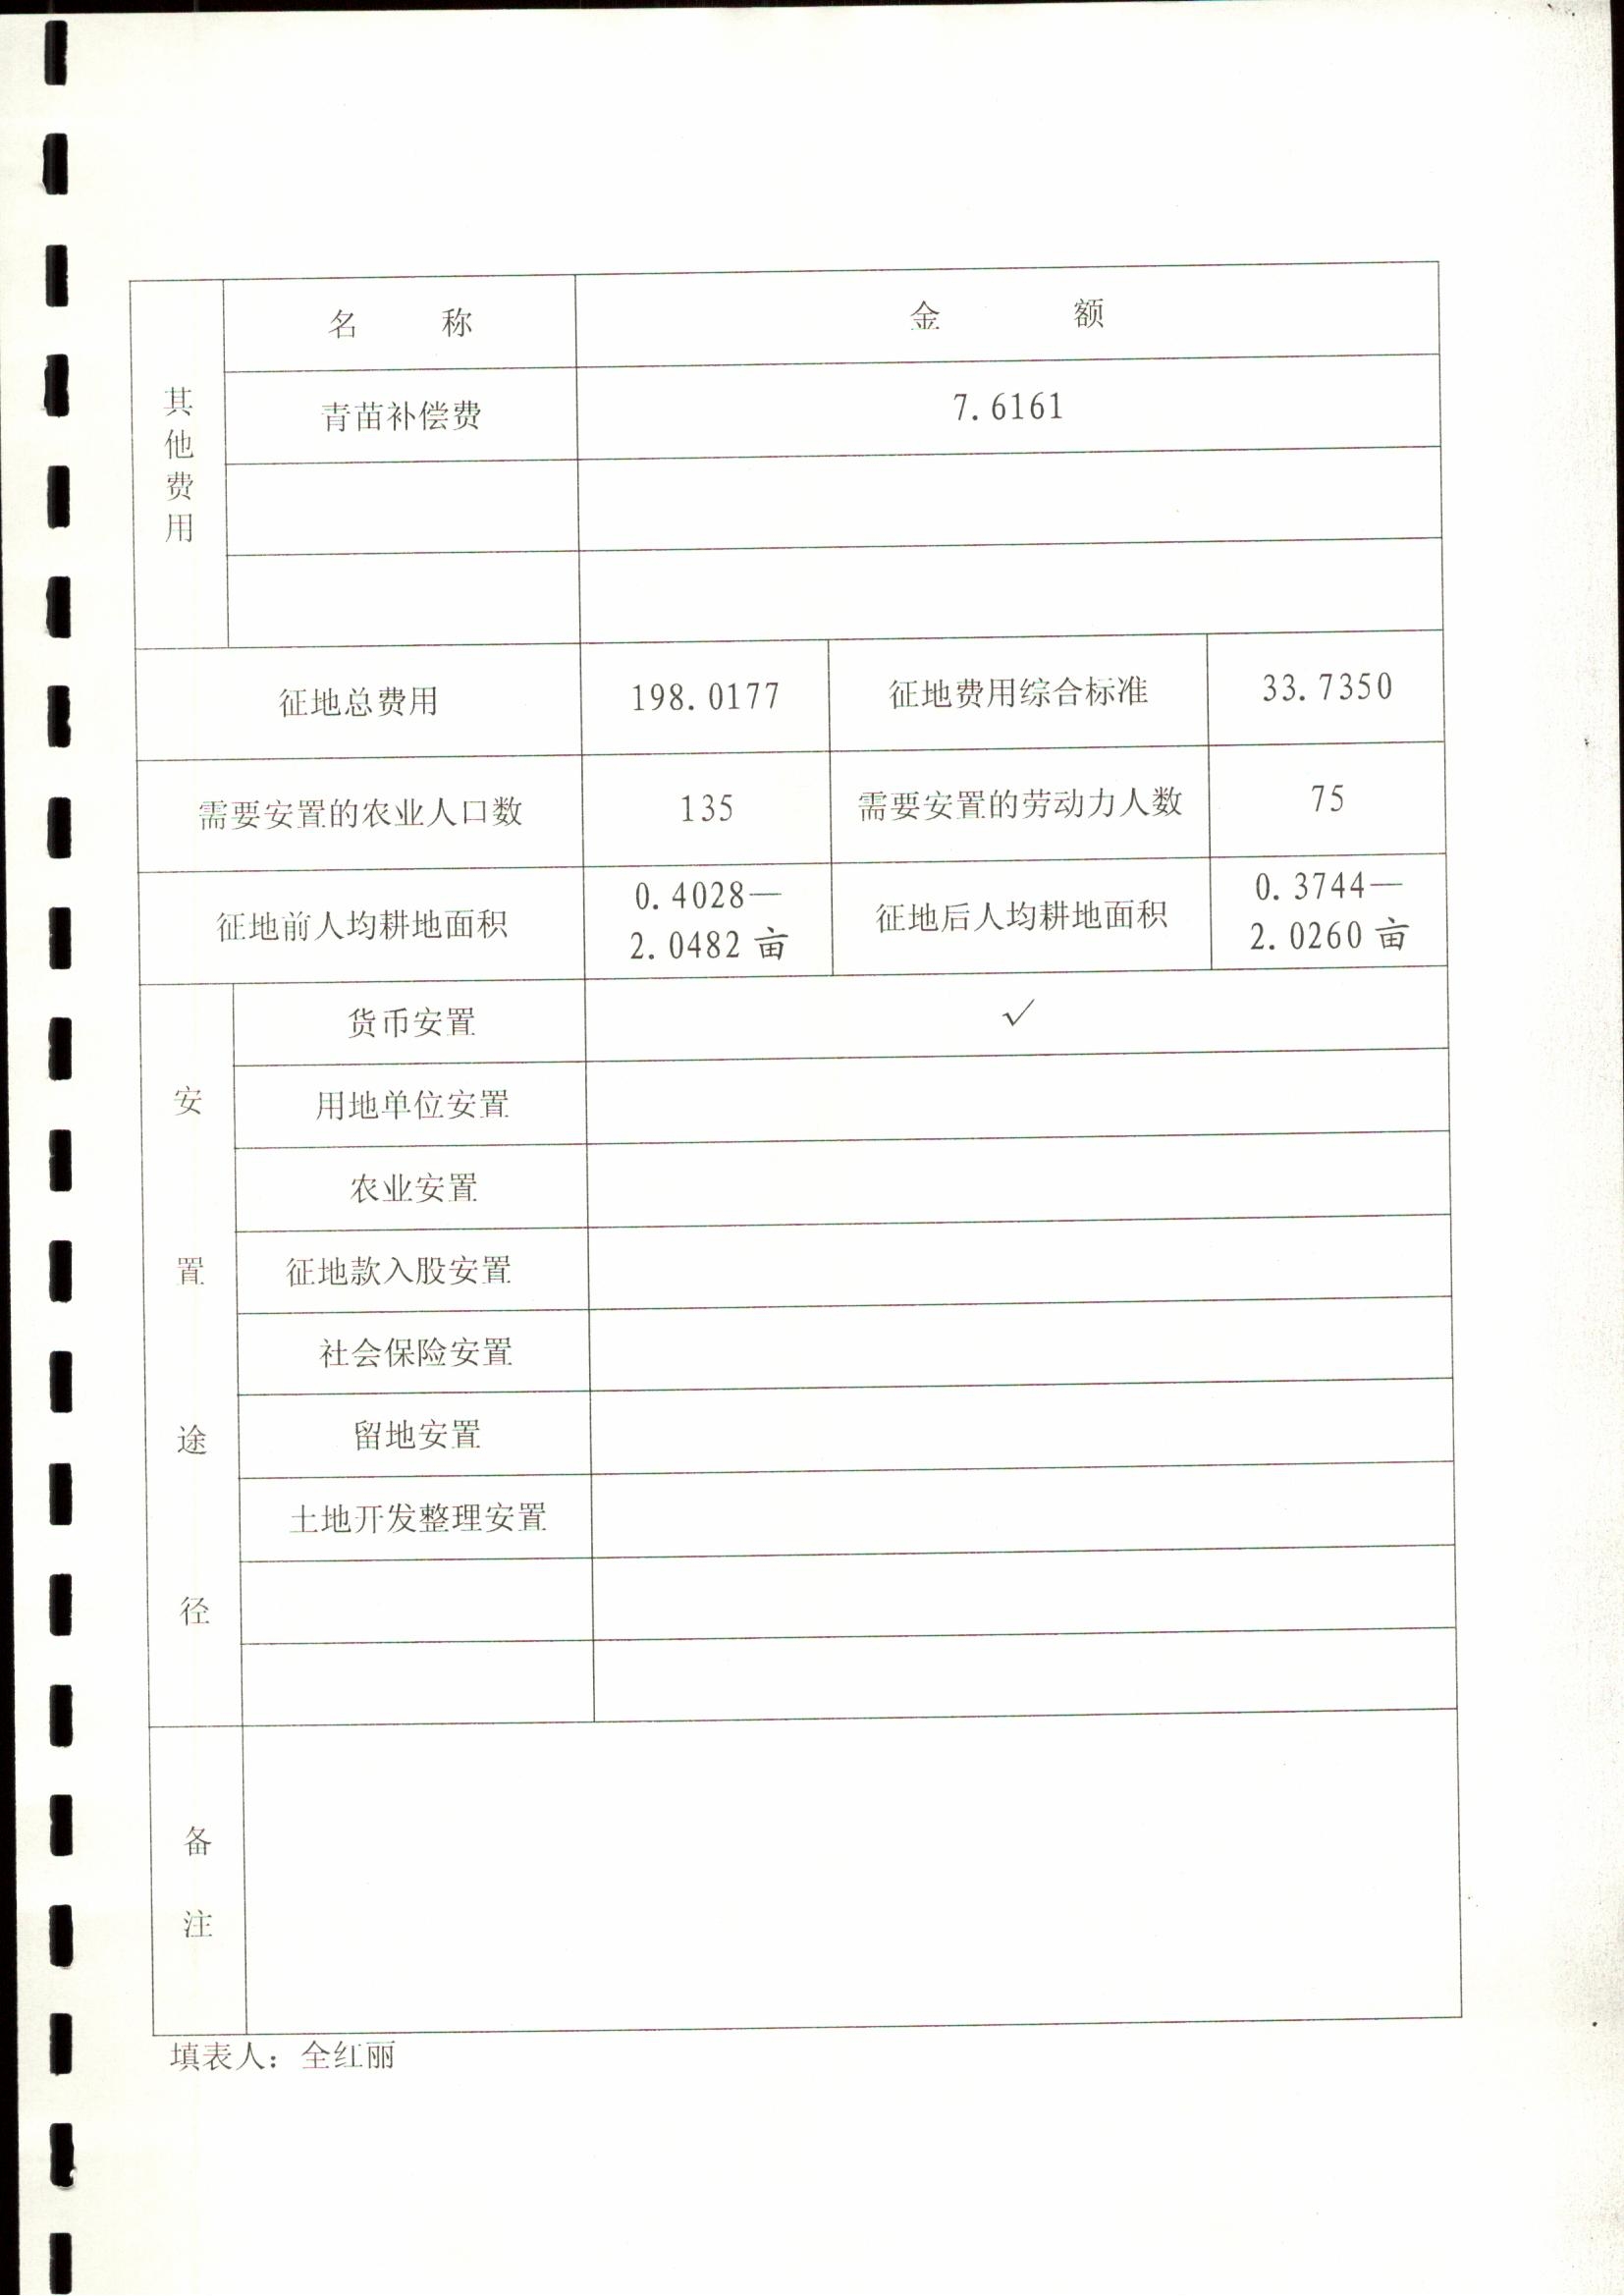 其他费用
名 称 金 额
青苗补偿费 7.6161
征地总费用 198.0177 征地费用综合标准 33.7350
需要安置的农业人口数 135 需要安置的劳动力人数 75
征地前人均耕地面积 0.4028—2.0482亩 征地后人均耕地面积 0.3744—2.0260亩
安置途径
货币安置 √
用地单位安置
农业安置
征地款入股安置
社会保险安置
留地安置
土地开发整理安置
备注
填表人：全红丽